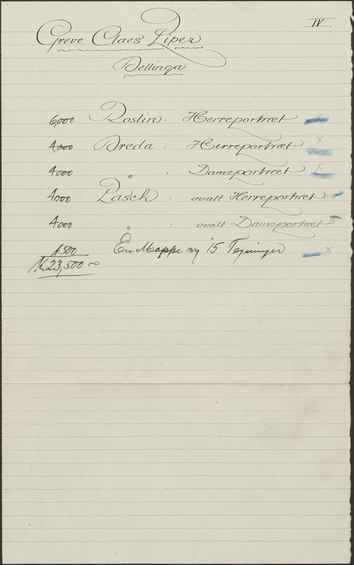 IV
Greve Claes Piper
Bellinga
6,000 Roslin. Herreportræt
4,000 Breda. Herreportræt x
4,000 " . Dameportræt x
4,000 Pasch. ovalt Herreportræt x
4,000 " . ovalt Dameportræt
1500 En Mappe og 15 Tegninger x
K. 23,500 -